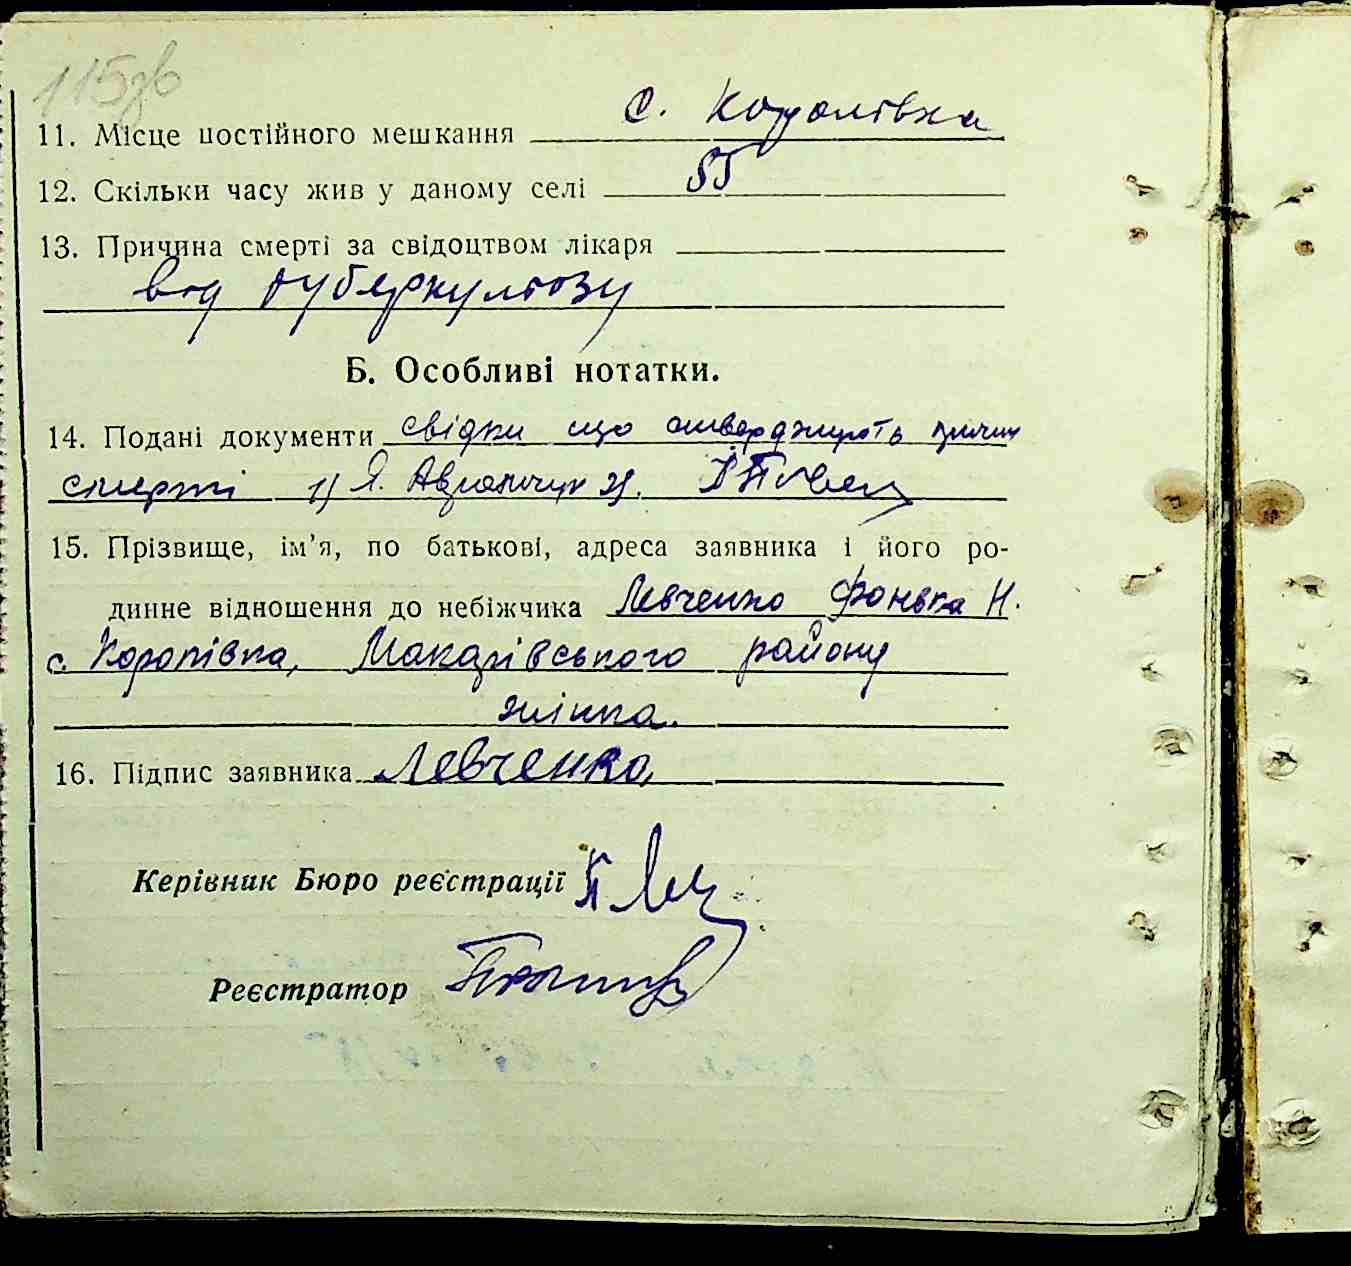 115зв
11. Місце постійного мешкання с. Королівка
12. Скільки часу жив у даному селі 55
13. Причина смерті за свідоцтвом лікаря
від туберкульозу
Б. Особливі нотатки.
14. Подані документи свідки що стверджують причину
смерті 1) Я. 2).
15. Прізвище, ім’я, по батькові, адреса заявника і його ро-
динне відношення до небіжчика Левченко Н.
с. Королівка, Макарівського району
жінка.
16. Підпис заявника Левченко
Керівник Бюро реєстрації
Реєстратор